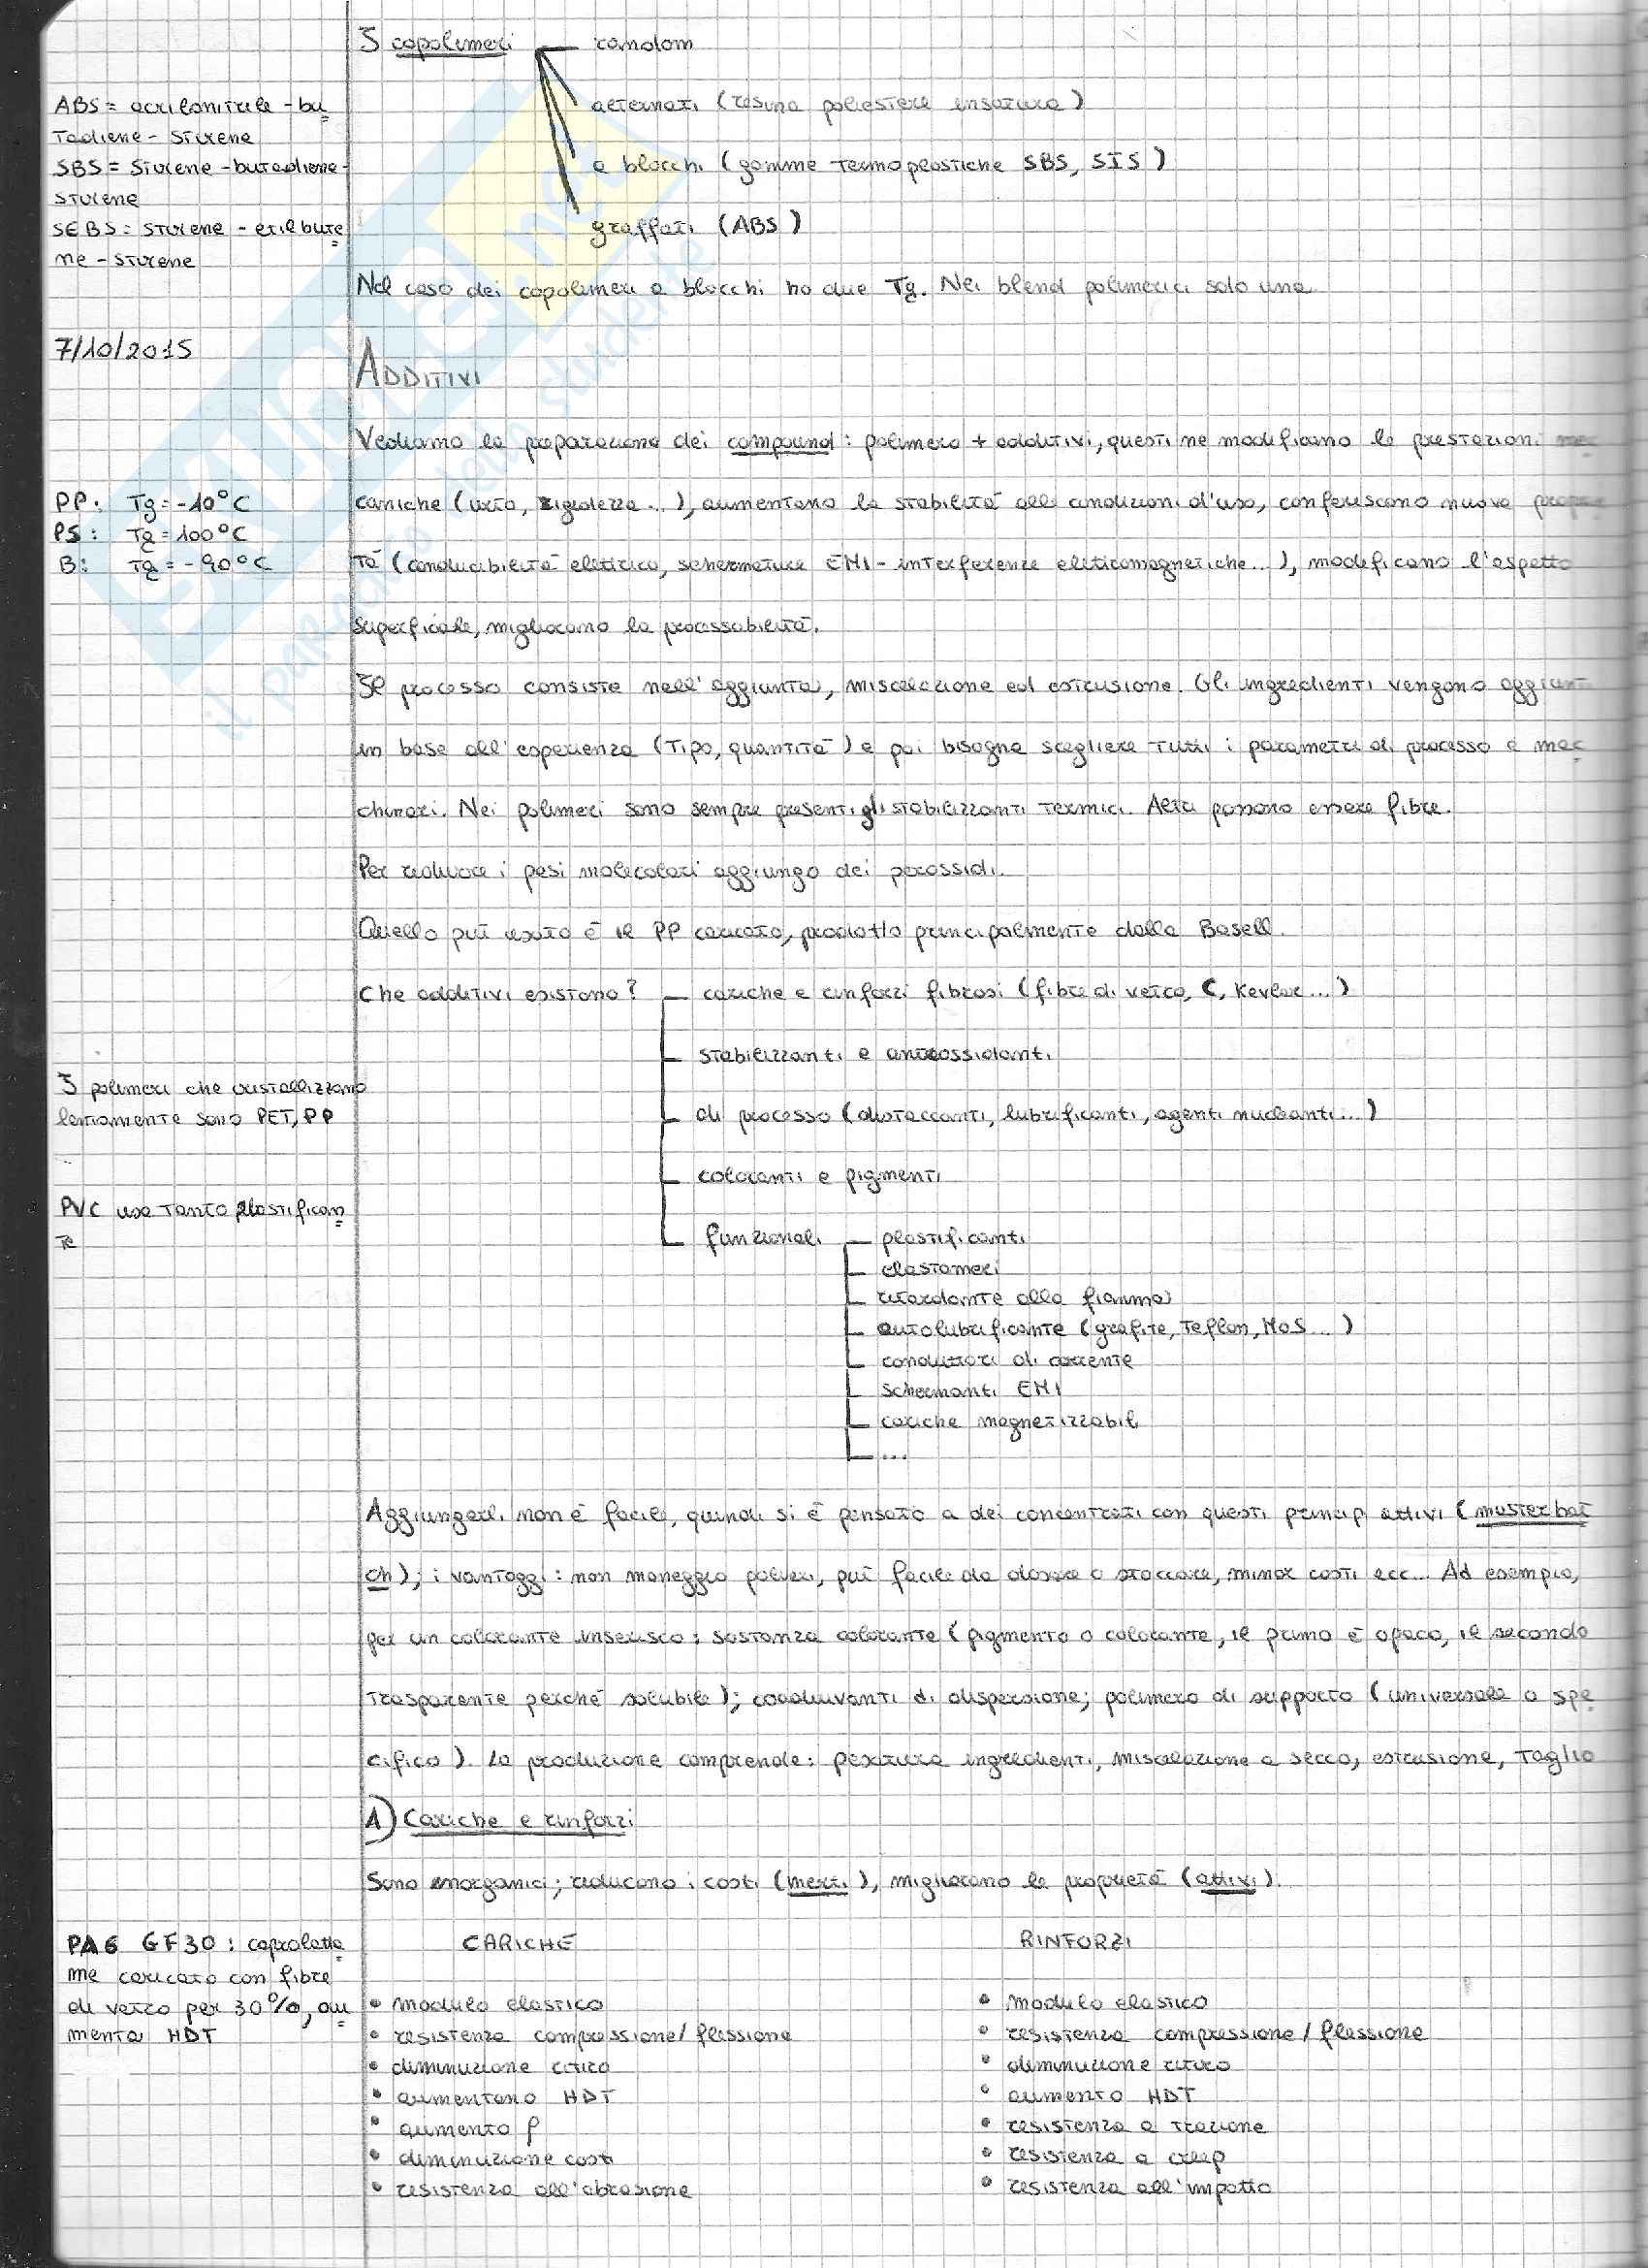 I copolimeri
random
alternati (resina poliestere insatura)
a blocchi (gomme termoplastiche SBS, SIS)
graffati (ABS)
ABS = acrilonitrile - bu
tadiene - stirene
SBS = stirene - butadiene -
stirene
SEBS: stirene - etilbute
ne - stirene
Nel caso dei copolimeri a blocchi ho due Tg. Nei blend polimerici solo una
7/10/2015
ADDITIVI
Vediamo la preparazione dei compound: polimero + additivi, questi ne modificano le prestazioni mec
caniche (urto, rigidezza...), aumentano la stabilità alle condizioni d'uso, conferiscono nuove proprie
tà (conducibilità elettrica, schermature EMI - interferenze elettromagnetiche...), modificano l'aspetto
superficiale, migliorano la processabilità.
PP: Tg = -10°C
PS: Tg = 100°C
B: Tg = -90°C
Il processo consiste nell'aggiunta, miscelazione ed estrusione. Gli ingredienti vengono aggiunti
in base all'esperienza (tipo, quantità) e poi bisogna scegliere tutti i parametri di processo e mac
chinari. Nei polimeri sono sempre presenti gli stabilizzanti termici. Altri possono essere fibre.
Per ridurre i pesi molecolari aggiungo dei perossidi.
Quello più usato è il PP caricato, prodotto principalmente dalla Basell.
Che additivi esistono?
cariche e rinforzi fibrosi (fibre di vetro, C, Kevlar...)
stabilizzanti e antiossidanti
di processo (distaccanti, lubrificanti, agenti nucleanti...)
coloranti e pigmenti
funzionali
plastificanti
elastomeri
ritardante alla fiamma
autolubrificante (grafite, Teflon, MoS...)
conduttori di corrente
schermanti EMI
cariche magnetizzabili
...
I polimeri che cristallizzano
lentamente sono PET, PP
PVC usa tanto plastifican
te
Aggiungerli non è facile, quindi si è pensato a dei concentrati con questi princip attivi (masterbat
ch); i vantaggi: non maneggio polveri, più facile da dosare o stoccare, minor costi ecc... Ad esempio,
per un colorante inserisco: sostanza colorante (pigmento o colorante, il primo è opaco, il secondo
trasparente perché solubile); coadiuvanti di dispersione; polimero di supporto (universale o spe
cifico). La produzione comprende: pesatura ingredienti, miscelazione a secco, estrusione, taglio
A) Cariche e rinforzi
Sono inorganici; riducono i costi (inerti), migliorano le proprietà (attivi).
PA6 GF30: caprolatta
me caricato con fibre
di vetro per 30%, au
menta HDT
CARICHE
• modulo elastico
• resistenza compressione/flessione
• diminuzione ritiro
• aumentano HDT
• aumento ρ
• diminuzione costi
• resistenza all'abrasione
RINFORZI
• modulo elastico
• resistenza compressione/flessione
• diminuzione ritiro
• aumento HDT
• resistenza a trazione
• resistenza a creep
• resistenza all'impatto